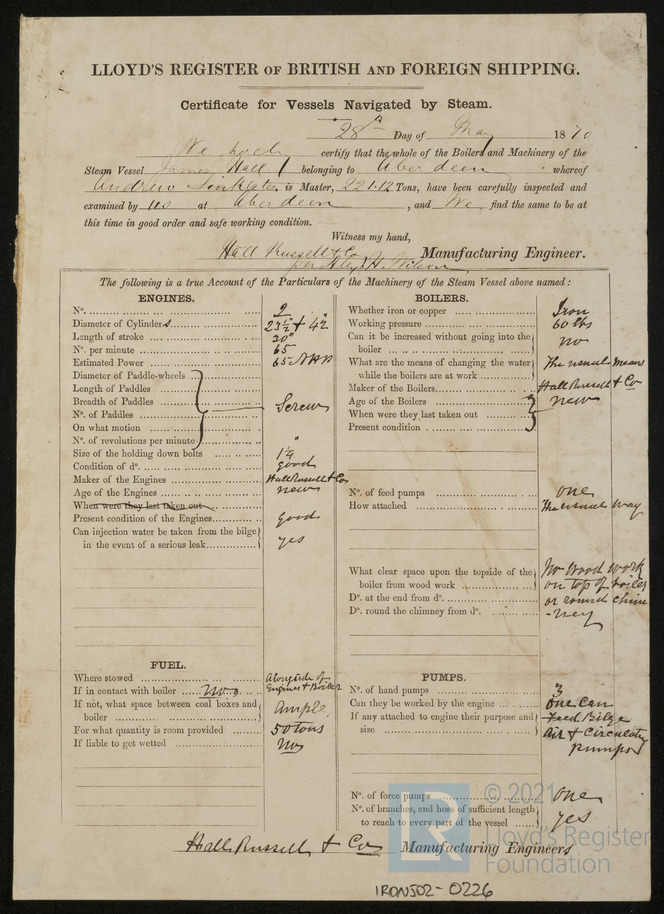 LLOYD'S REGISTER OF BRITISH AND FOREIGN SHIPPING.
Certificate for Vessels Navigated by Steam.
28th Day of May 1870
We hereby certify that the whole of the Boilers and Machinery of the
Steam Vessel James Hall belonging to Aberdeen whereof
Andrew Sinklater is Master, 221.12 Tons, have been carefully inspected and
examined by us at Aberdeen, and We find the same to be at
this time in good order and safe working condition.
Witness my hand,
Hall Russell & Co Manufacturing Engineer.
per Alex H. Wilson
The following is a true Account of the Particulars of the Machinery of the Steam Vessel above named:
ENGINES.
No. 2
Diameter of Cylinders 23½" & 42"
Length of stroke 30"
No. per minute 65
Estimated Power 65 NHP
Diameter of Paddle-wheels
Length of Paddles
Breadth of Paddles Screw
No. of Paddles
On what motion
No. of revolutions per minute
Size of the holding down bolts 1¼"
Condition of do. good
Maker of the Engines Hall Russell & Co
Age of the Engines new
When were they last taken out
Present condition of the Engines good
Can injection water be taken from the bilge
in the event of a serious leak yes
FUEL.
Where stowed Alongside of
Engines & Boiler
If in contact with boiler no
If not, what space between coal boxes and
boiler Ample
For what quantity is room provided 50 tons
If liable to get wetted No
BOILERS.
Whether iron or copper Iron
Working pressure 60 lbs
Can it be increased without going into the
boiler no
What are the means of changing the water
while the boilers are at work The usual means
Maker of the Boilers Hall Russell & Co
Age of the Boilers new
When were they last taken out
Present condition
No. of feed pumps one
How attached The usual way
What clear space upon the topside of the
boiler from wood work No wood work
on top of boiler
Do. at the end from do. or round chim
Do. round the chimney from do. -ney
PUMPS.
No. of hand pumps 3
Can they be worked by the engine one can
If any attached to engine their purpose and
size Feed Bilge
Air & Circulating
pumps
No. of force pumps one
No. of branches, and hose of sufficient length
to reach to every part of the vessel yes
Hall Russell & Co Manufacturing Engineers
© 2021
Lloyd's Register
Foundation
LR
IRON502-0226